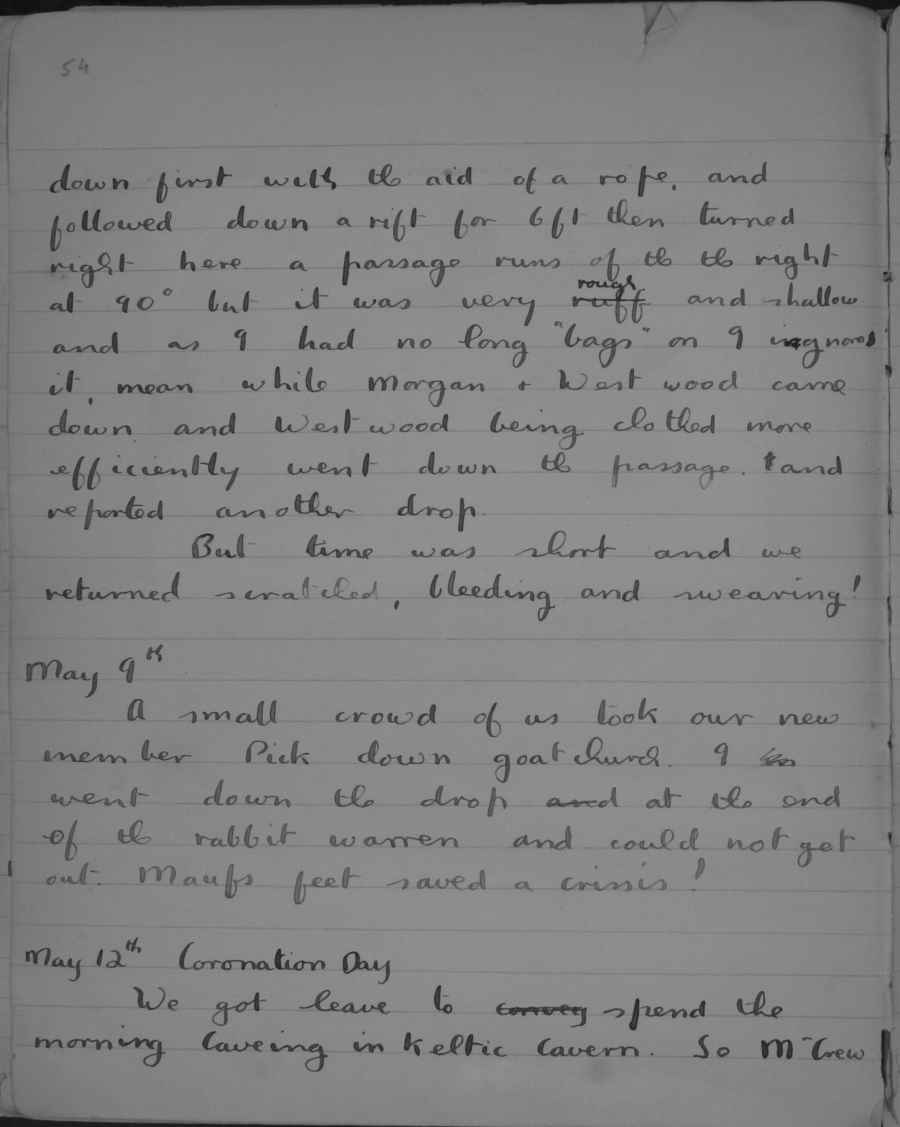 54
down first with the aid of a rope. and
followed down a rift for 6ft then turned
right here a passage runs of the the right
at 90° but it was very ruff rough and shallow
and as I had no long "bags" on I ingnored
it, mean while Morgan + West wood came
down and West wood being clothed more
efficiently went down the passage. and
reported another drop.
But time was short and we
returned scratched, bleeding and swearing!
May 9th
A small crowd of us took our new
member Pick down goatchurch. I
went down the drop and at the end
of the rabbit warren and could not get
out. feet saved a crisis!
May 12th Coronation Day
We got leave to convey spend the
morning Caveing in Keltic Cavern. So McCrew